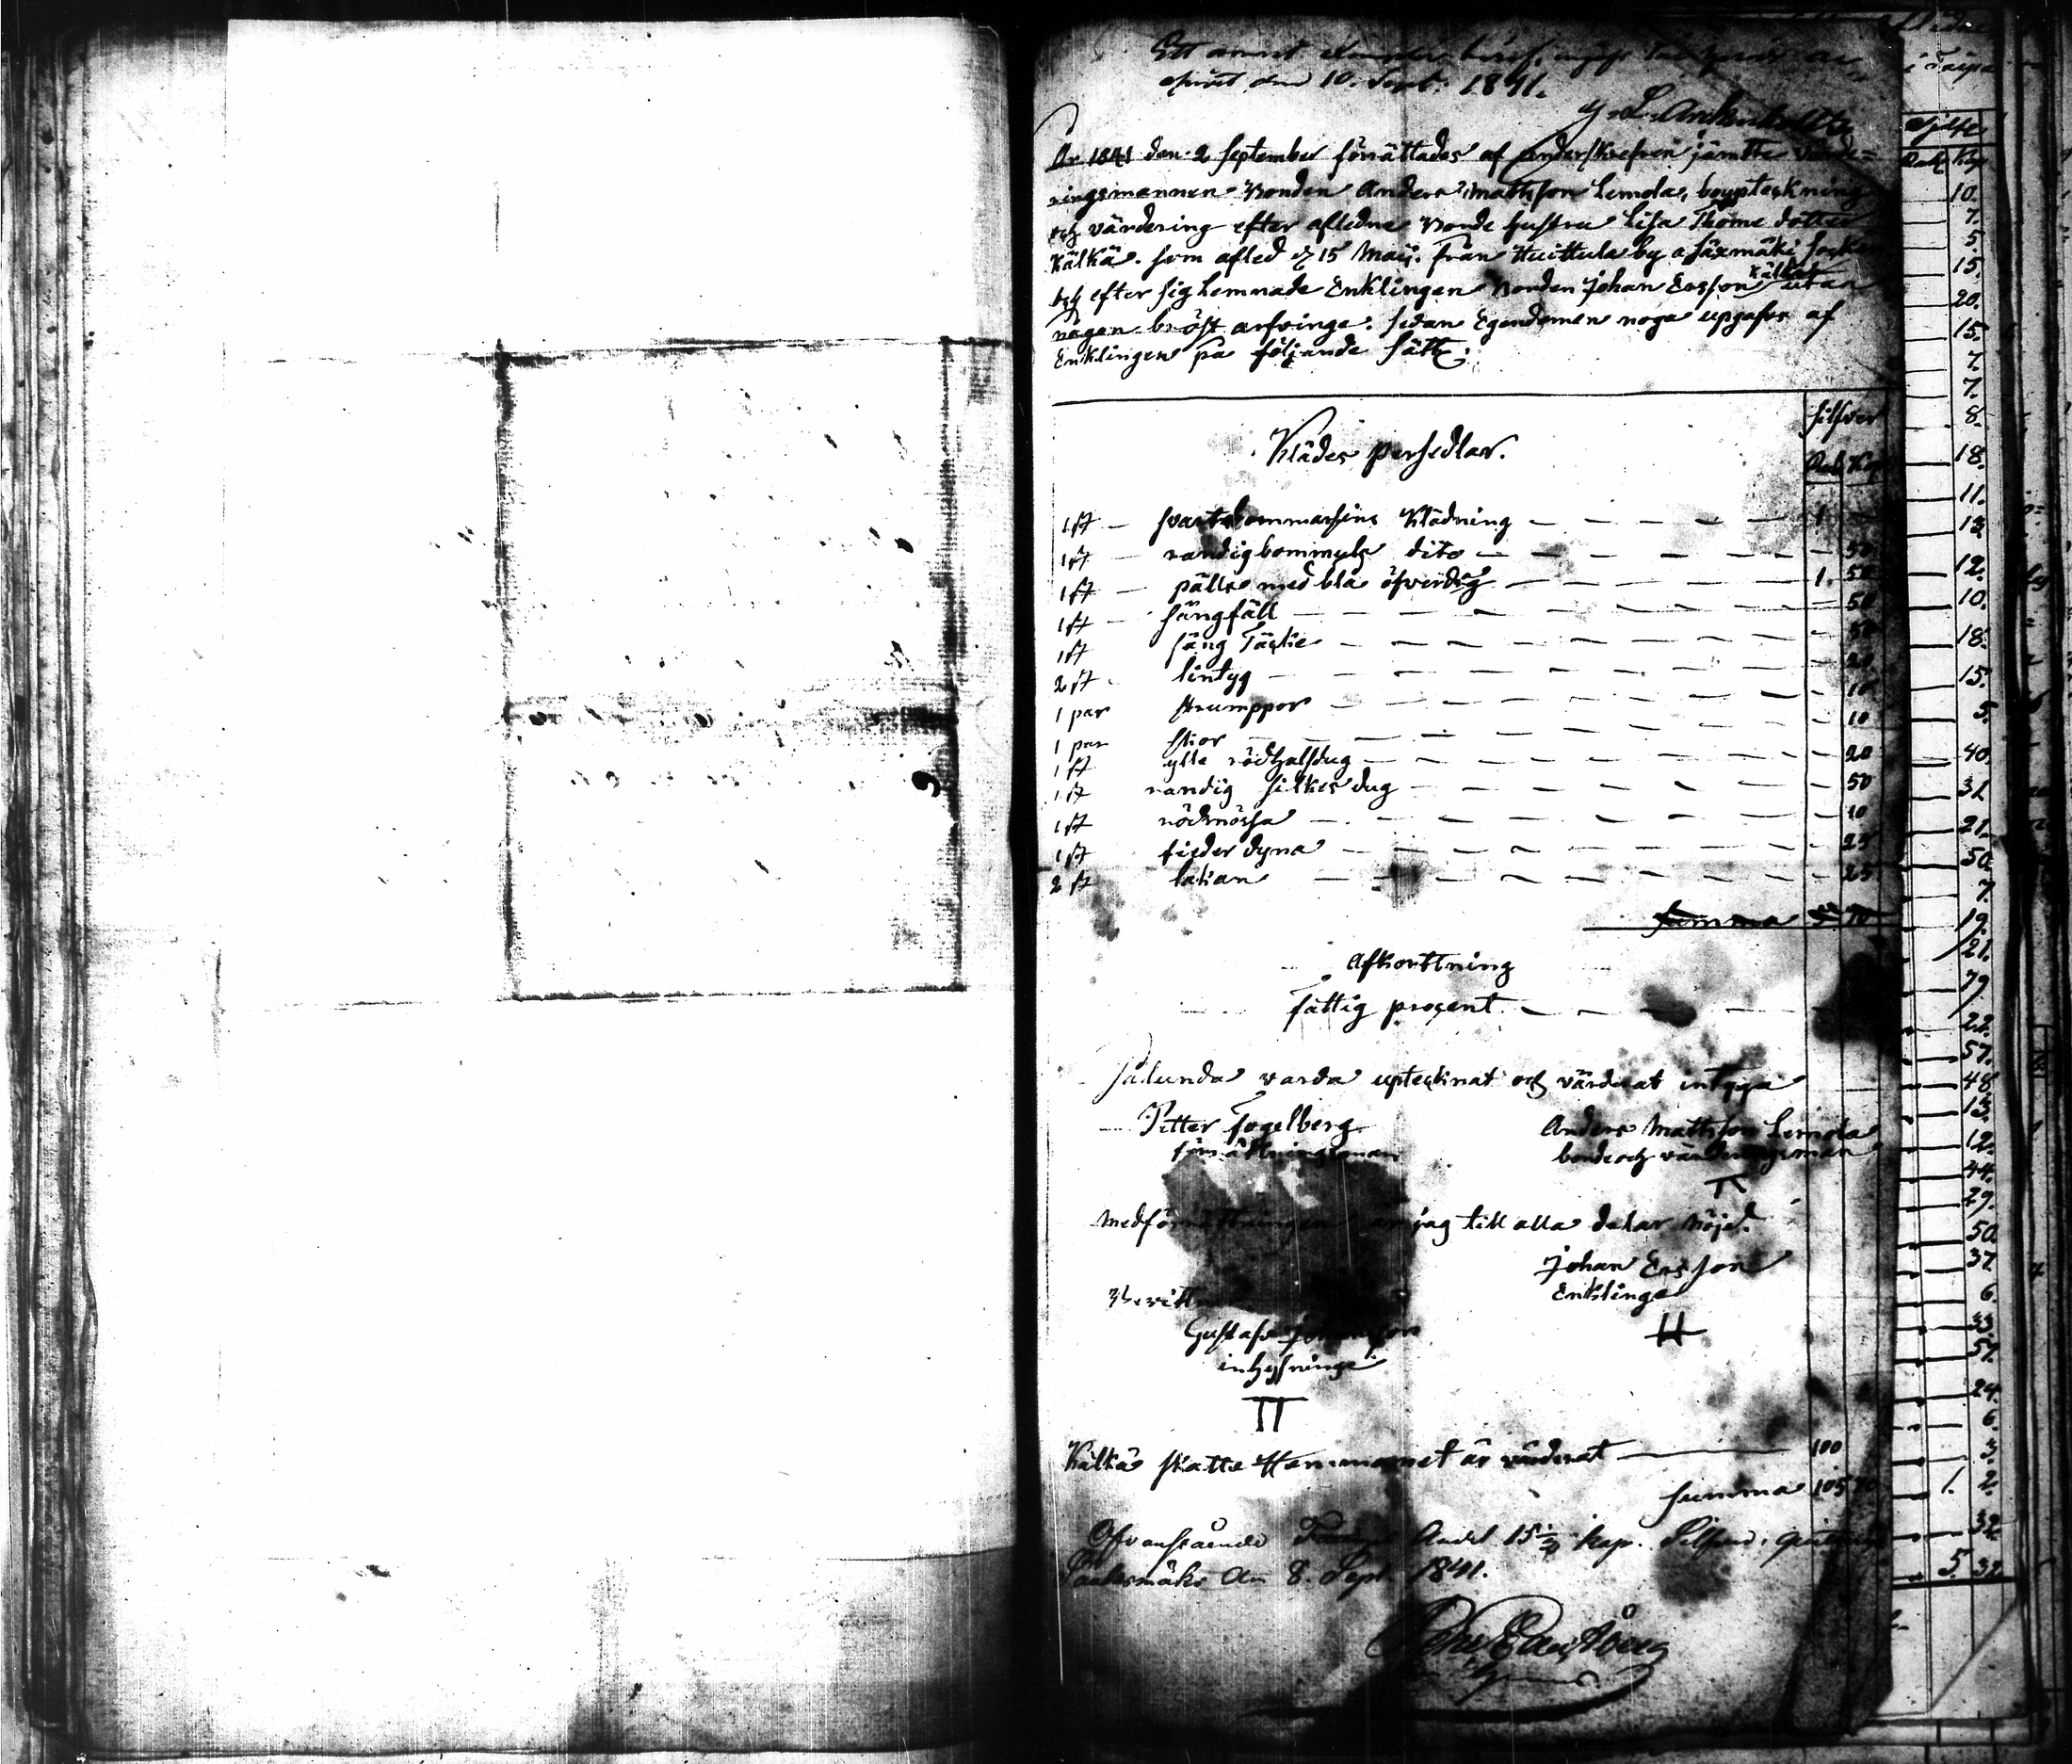 Ett annat
den 10. Sept: 1841.
År 1841 den 2 September förrättades af underskrefven jämtte värde=
ringsmannen Bonden Anders Mattsson Lemola, boupteckning
och värdering efter afledne Bonde hustru Lisa Thome dotter
Kälkä. som afled d 15 Maij. från Huittula by a Säxmäki Socken
och efter sig lemnade Enklingen Bonden Johan Ersson Kälkä utan
någon bröst arfvinge. sedan Egendomen noga upgafvs af
Enklingen på följande sätt:
silfver
Klädes persedlar.
Rub Kop
1 st — svart bommarsins Klädning — 1
1 st — randig bommuls dito — 50
1 st — pälts med blå öfverdrag — 1. 50
1 st — sängfäll — 50
1 st säng Täcke — 50
2 st lintyg — 20
1 par strumppor — 10
1 par skor — 10
1 st ylle röd halsdug — 20
1 st randig silkes dug — 50
1 st rödmössa — 10
1 st fieder dyna — 25
2 st lakan — 25
Summa 5 70
Afkorttning
fattig procent —
Sålunda varda uptecknat och värderat intyga
Petter Fogelberg Anders Mattsson Lemola
förrättningsman bonde och värderingsman
Med förrättningen är jag till alla delar nöjd.
Johan Ersson
Enklinge
Bevittna
Gustaf Johansson
inhysinge
Kälkä skatte Hemmanet är värderat — 100
Summa 105 70
Ofvanstående Andel 15 kop. Silfver, quitteras
Saaksmäki den 8. Sept 1841.
10.
7.
5.
15.
20.
15.
7.
7.
8.
18.
11.
13
12.
10.
18.
15.
5.
40.
31
21.
50.
7.
19.
21.
79
22.
57.
48
13.
12.
44.
29.
50.
37.
6.
33.
51.
24.
6.
3.
1. 2.
32
5. 32